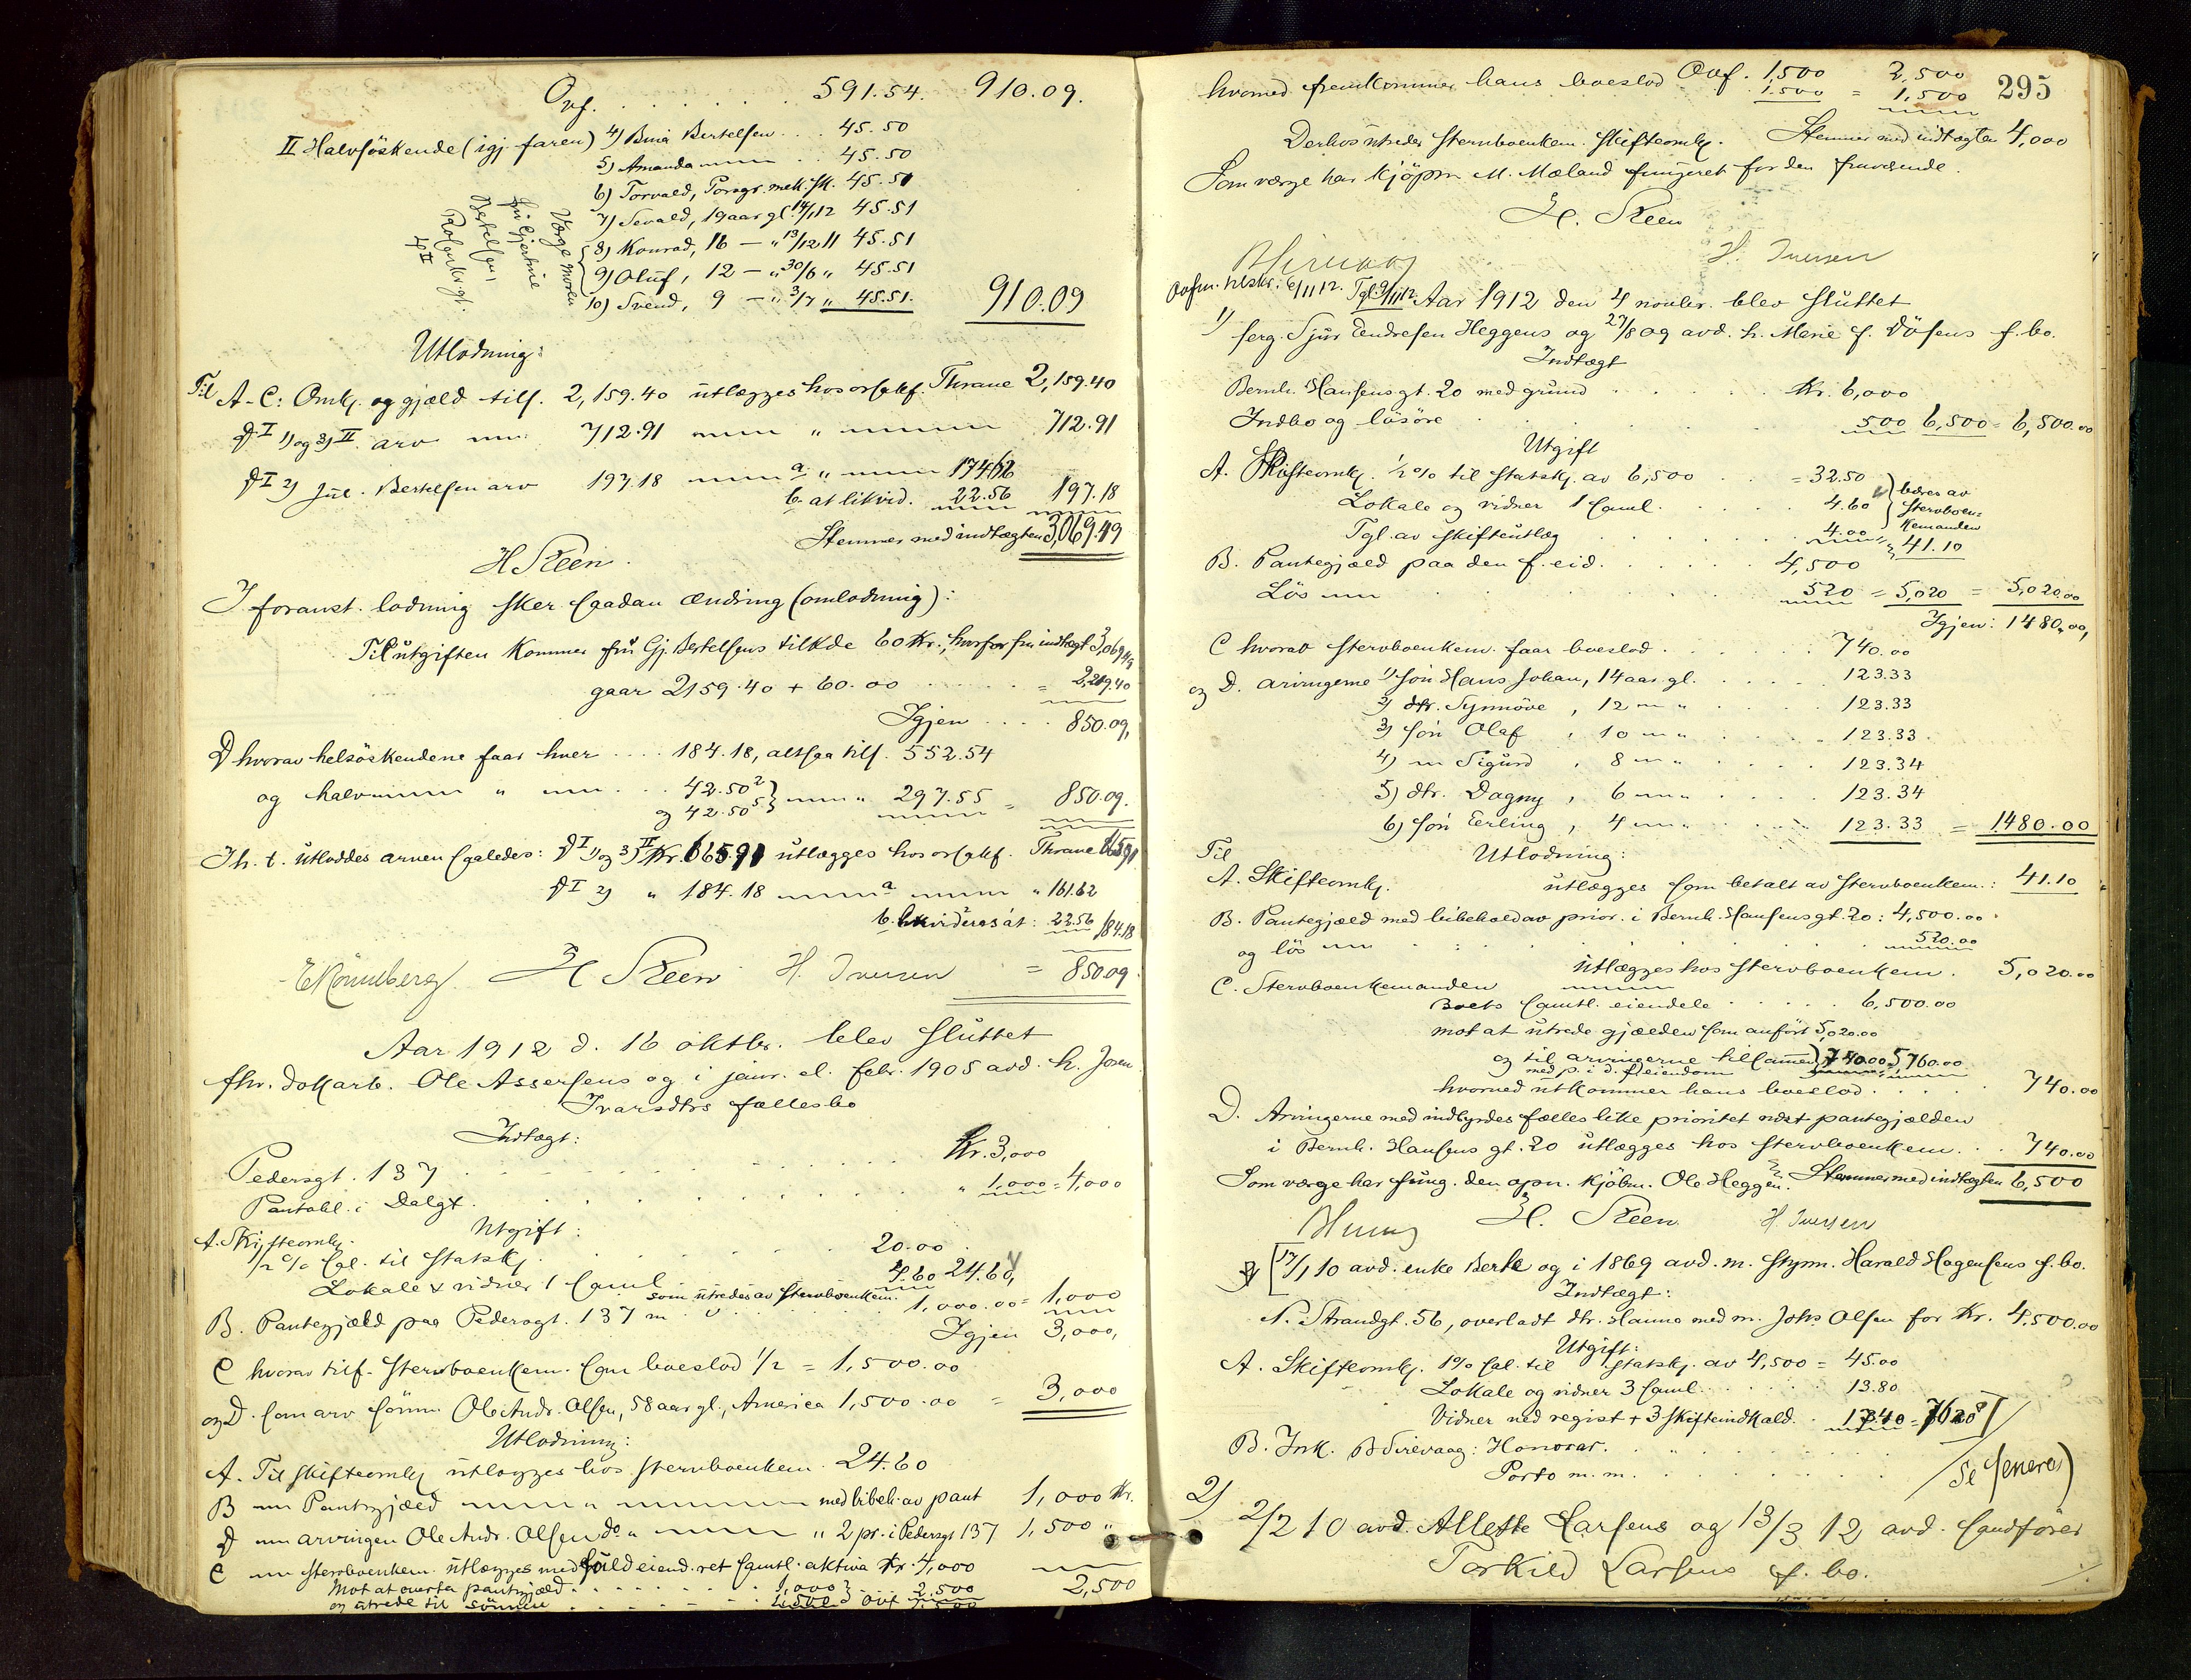 Ovf. . . . . . . . 591.54. 910.09.
II Halvsöskende (igj. faren) 4) Bina Bertelsen . . . 45.50
5) Amanda . . . 45.50
6) Torvald, Porsgr. mek. 45.51
7) Sevald, 19 aar gl. 14/1 12 45.51
8) Konrad, 16 — " 13/12 11 45.51
9) Oluf, 12 — " 30/6 " 45.51
10) Svend, 9 — " 3/7 " 45.51. 910.09
Værge moren
fru Gjertine
Bertelsen,
Rosenkr.gt.
Utlodning:
Til A-C: Omk. og gjæld tils. 2,159.40 utlægges hos orsakf. Thrane 2,159.40
D I 1) og 3) II arv 712.91 " 712.91
D I 2) Jul. Bertelsen arv 197.18 a. " 174.62
b. at likvid. 22.56 197.18
Stemmer med indtægten 3,069.49
H Steen.
I foranst. lodning sker saadan ændring (omlodning):
Til utgiften kommer fru Gj. Bertelsens tilkde 60 Kr., hvorfor fra indtægt 3,069.49
gaar 2159.40 + 60.00 . . . . . = 2,219.40
Igjen . . . . 850.09,
D hvorav helsöskendene faar hver . . . . 184.18, altsaa tils. 552.54
og halv " . . . 42.50 2)
og 42.50 5) " 297.55 = 850.09.
Ih. t. utloddes arven saaledes: D I 1) og 3) II Kr. 665.91 utlægges hos orsakf. Thrane 665.91
D I 2) " 184.18 a " 161.62
b. likvideres at: 22.56 184.18
E Rönneberg H Steen H. Iversen = 850.09.
Aar 1912 d. 16 oktbr. blev sluttet
fhv. dokarb. Ole Assersens og i janr. el. febr. 1905 avd. h. Joren
Ivarsdtrs fællesbo
Indtægt:
Pedersgt. 137 . . . . . . . Kr. 3,000
Pantobl. i Dalgt. . . . . . . " 1,000 = 4,000
Utgift:
A. Skifteomk.
1/2 % sal. til statsk. . . . . . 20.00
Lokale & vidner 1 saml. 4.60 24.60,
som utredes av stervboenkem.
B. Pantegjæld paa Pedersgt. 137 . . . . . 1,000.00 = 1,000
Igjen 3,000,
C hvorav tilf. stervboenkem. som boeslod 1/2 = 1,500.00
og D. som arv sönnen Ole Andr. Olsen, 58 aar gl., America 1,500.00 = 3,000
Utlodning:
A. Til skifteomk. utlægges hos stervboenkem. 24.60
B Pantegjæld " med bibeh. av pant 1,000 Kr.
D arvingen Ole Andr. Olsen do " " 2 pr. i Pedersgt 137 1,500 "
C stervboenkem. utlægges med fuld eiend. ret samtl. aktiva Kr. 4,000
Mot at overta pantegjæld . . . . . 1,000 . . . . 2,500 2,500
og utrede til sönnen . . . . . 1,500 Ovf 1,500
295
hvorved fremkommer hans boeslod Ovf. 1,500 2,500
1,500 = 1,500
Derhos utredes stervboenkem. skifteomk. Stemmer med indtægten 4,000
Som værge har kjöpm M. Mæland fungeret for den fraværende.
H. Steen
H. Iversen
Avsm. tilskr. 6/11 12. Tgl. 9/11 12. Aar 1912 den 4 novbr. blev sluttet
1) serg. Sjur Endresen Heggens og 27/8 09 avd. h. Marie f. Döfens f. bo.
Indtægt
Bernh. Hansensgt. 20 med grund . . . . . Kr. 6,000
Indbo og lösöre . . . . . 500 6,500 = 6,500.00
Utgift
A. Skifteomk. 1/2 % til statsk. av 6,500 . . . = 32.50
Lokale og vidner 1 saml. . . . . . 4.60
Tgl. av skifteutlæg . . . . . 4.00 = 41.10
bæres av
stervboen-
kemanden
B. Pantegjæld paa den f. eid. . . . . . 4,500
Lös . . . . . 520 = 5,020 = 5,020.00
Igjen: 1480.00,
C hvorav stervboenkem. faar boeslod . . . . . 740.00
og D. arvingerne 1) sön Hans Johan, 14 aar gl. . . . . . 123.33
2) dtr. Synnöve, 12 " . . . . 123.33
3) sön Olaf, 10 " . . . . 123.33
4) Sigurd, 8 " . . . . 123.34
5) dtr. Dagny, 6 " . . . . 123.34
6) sön Erling, 4 " . . . . 123.33 = 1480.00
Til Utlodning:
A. Skifteomk. utlægges som betalt av stervboenkem.: 41.10
B. Pantegjæld med bibehold av prior. i Bernh. Hansensgt. 20: 4,500.00
og lös . . . . . 520.00
utlægges hos stervboenkem. 5,020.00
C. Stervboenkemanden
Boets samtl. eiendele . . . . . 6,500.00
mot at utrede gjælden som anfört 5,020.00
og til arvingerne tilsammen 740.00 5,760.00
med p. i d. f. eiendom
hvorved utkommer hans boeslod . . . . 740.00
D. Arvingerne med indbyrdes fælles like prioritet næst pantegjælden
i Bernh. Hansens gt. 20 utlægges hos stervboenkem. . . 740.00
Som værge har fung. den opn. kjöbm. Ole Heggen. Stemmer med indtægten 6,500
H. Steen H. Iversen
2) [17/1 10 avd. enke Berte og i 1869 avd. m. styrm. Harald Hagensens f. bo.
Indtægt:
N. Strandgt. 56, overladt dtr. Hanna med m. Johs Olsen for Kr. 4,500.00
Utgift:
A. Skifteomk. 1% sal. til statsk. av 4,500 = 45.00
Lokale og vidner 3 saml. . . . . . 13.80
Vidner ved regist + 3 skifteindkald. .
B. Ink. B Sirevaag: Honorar. . . . . .
Porto m. m. . . . . . Se senere)
2) 2/2 10 avd. Allette Larsens og 13/3 12 avd. sandförer
Torkild Larsens f. bo.